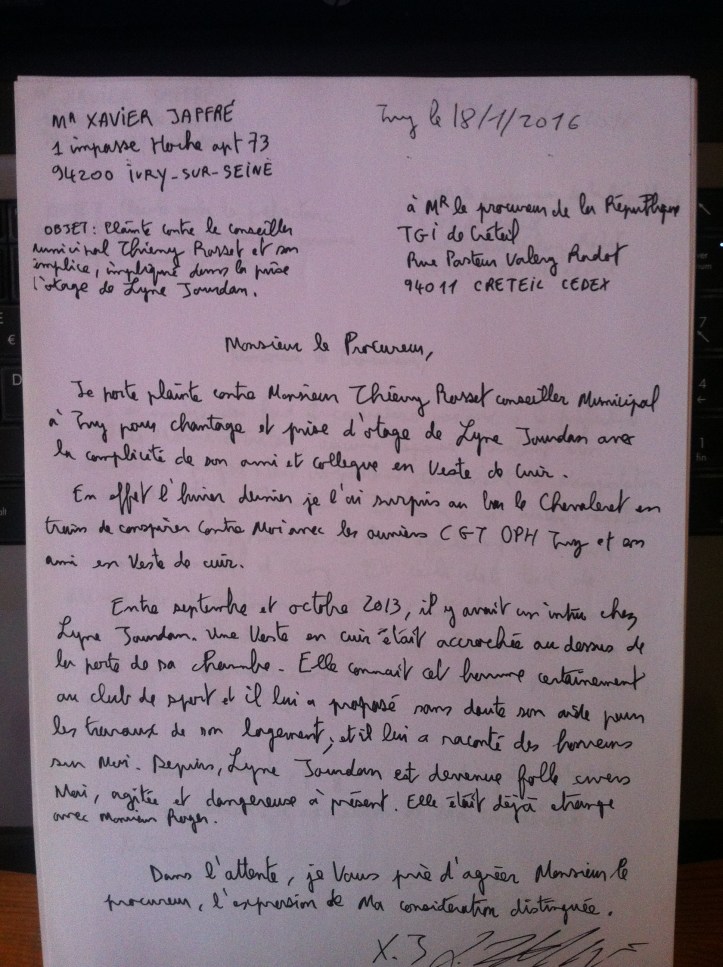 MR XAVIER JAFFRÉ
1 impasse Hoche apt 73
94200 IVRY-SUR-SEINE
Ivry le 18/1/2016
à MR le procureur de la République
TGI de Créteil
Rue Pasteur Valery Radot
94011 CRETEIL CEDEX
OBJET: Plainte contre le conseiller
municipal Thierry Rosset et son
complice, impliqué dans la prise
d'otage de Lyne Jourdan.
Monsieur le Procureur,
Je porte plainte contre Monsieur Thierry Rosset conseiller Municipal
à Ivry pour chantage et prise d'otage de Lyne Jourdan avec
la complicité de son ami et collegue en Veste de Cuir.
En effet l'hiver dernier je l'ai surpris au bar le Chevaleret en
train de conspirer Contre Moi avec les ouvriers CGT OPH Ivry et son
ami en Veste de cuir.
Entre septembre et octobre 2013, il y avait un intru chez
Lyne Jourdan. Une Veste en cuir était accrochée au dessus de
la porte de sa chambre. Elle connait cet homme certainement
au club de sport et il lui a proposé sans doute son aide pour
les travaux de son logement; et il lui a raconté des horreurs
sur Moi. Depuis, Lyne Jourdan est devenue folle envers
Moi, agitée et dangereuse à présent. Elle était déjà etrange
avec Monsieur Roger.
Dans l'attente, je Vous prie d'agréer Monsieur le
procureur, l'expression de Ma consideration distinguée.
X. J